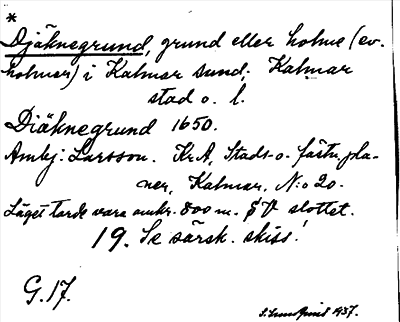 *
Djäknegrund, grund eller holme (ev.
holmar) i Kalmar sund; Kalmar
stad o. l.
Diäknegrund 1650.
Ambj: Larsson. Kr A, Stads- o. fästn. pla-
ner, Kalmar, N:o 20.
Läget torde vara omkr. 800 m. SV slottet.
19. Se särsk. skiss!
G. 17.
1937.